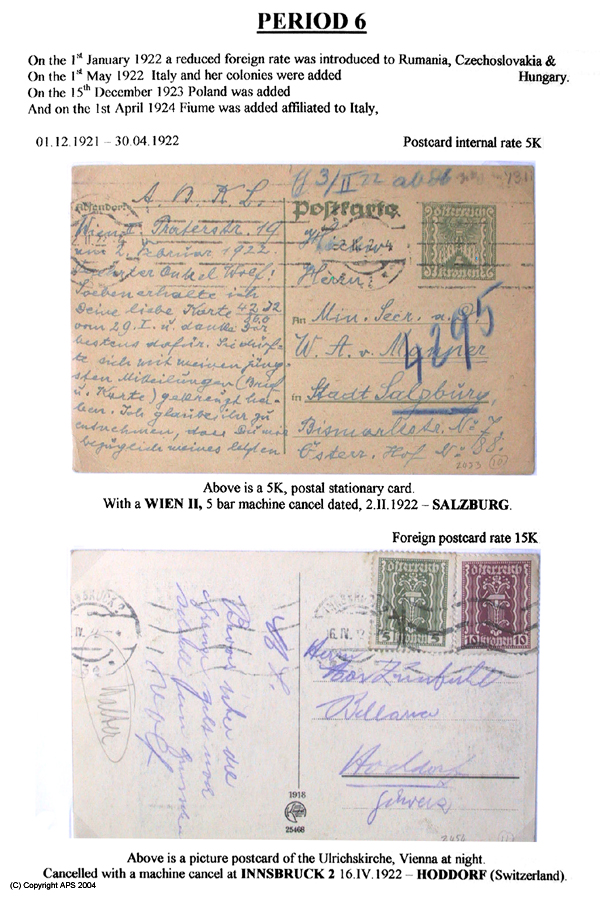 PERIOD 6
On the 1st January 1922 a reduced foreign rate was introduced to Rumania, Czechoslovakia &
On the 1st May 1922 Italy and her colonies were added Hungary.
On the 15th December 1923 Poland was added
And on the 1st April 1924 Fiume was added affiliated to Italy,
01.12.1921 – 30.04.1922 Postcard internal rate 5K
A. B. K. L.
Postkarte
Österreich
Kronen
Wien II. Praterstr. 19
am 2. Februar 1922.
Onkel Wolf!
Soeben erhalte ich
Deine liebe Karte 4232
vom 29. I. u. danke Dir
bestens dafür.
sich mit meinen jüng-
sten Mitteilungen (Brief
u. Karte) gekreuzt ha-
ben. Ich glaube ihr zu
entnehmen, dass Du mir
bezüglich meines letzten
Herrn
An Min. Secr. a. D.
W. A. v.
4295
in Stadt Salzburg,
Bismarkstr. No 7
Österr. Hof No 38.
2033
(10)
Above is a 5K, postal stationary card.
With a WIEN II, 5 bar machine cancel dated, 2.II.1922 – SALZBURG.
Foreign postcard rate 15K
INNSBRUCK 2
Österreich
5 Kronen 5
Österreich
10 Kronen 10
Herrn
Bellaria
Hochdorf
Schweiz
1918
25468
2454
(11)
Above is a picture postcard of the Ulrichskirche, Vienna at night.
Cancelled with a machine cancel at INNSBRUCK 2 16.IV.1922 – HODDORF (Switzerland).
(C) Copyright APS 2004